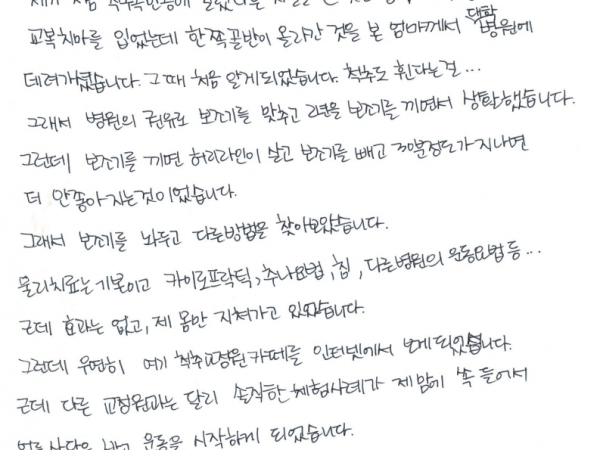 제가 처음 척추측만증에
교복치마를 입었는데 한쪽골반이 올라간 것을 본 엄마께서 대학병원에
데려가셨습니다. 그때 처음 알게되었습니다. 척추도 휜다는걸...
그래서 병원의 권유로 보조기를 맞추고 2년을 보조기를 끼면서 생활했습니다.
그런데 보조기를 끼면 허리라인이 살고 보조기를 빼고 30분정도가 지나면
더 안좋아지는것이었습니다.
그래서 보조기를 놔두고 다른방법을 찾아보았습니다.
물리치료는 기본이고 카이로프락틱, 추나요법, 침, 다른병원의 운동요법 등...
근데 효과는 없고, 제 몸만 지쳐가고 있었습니다.
그런데 우연히 여기 척추교정원카페를 인터넷에서 보게되었습니다.
근데 다른 교정원과는 달리 솔직한 체험사례가 제맘에 쏙 들어서
운동을 시작하게 되었습니다.